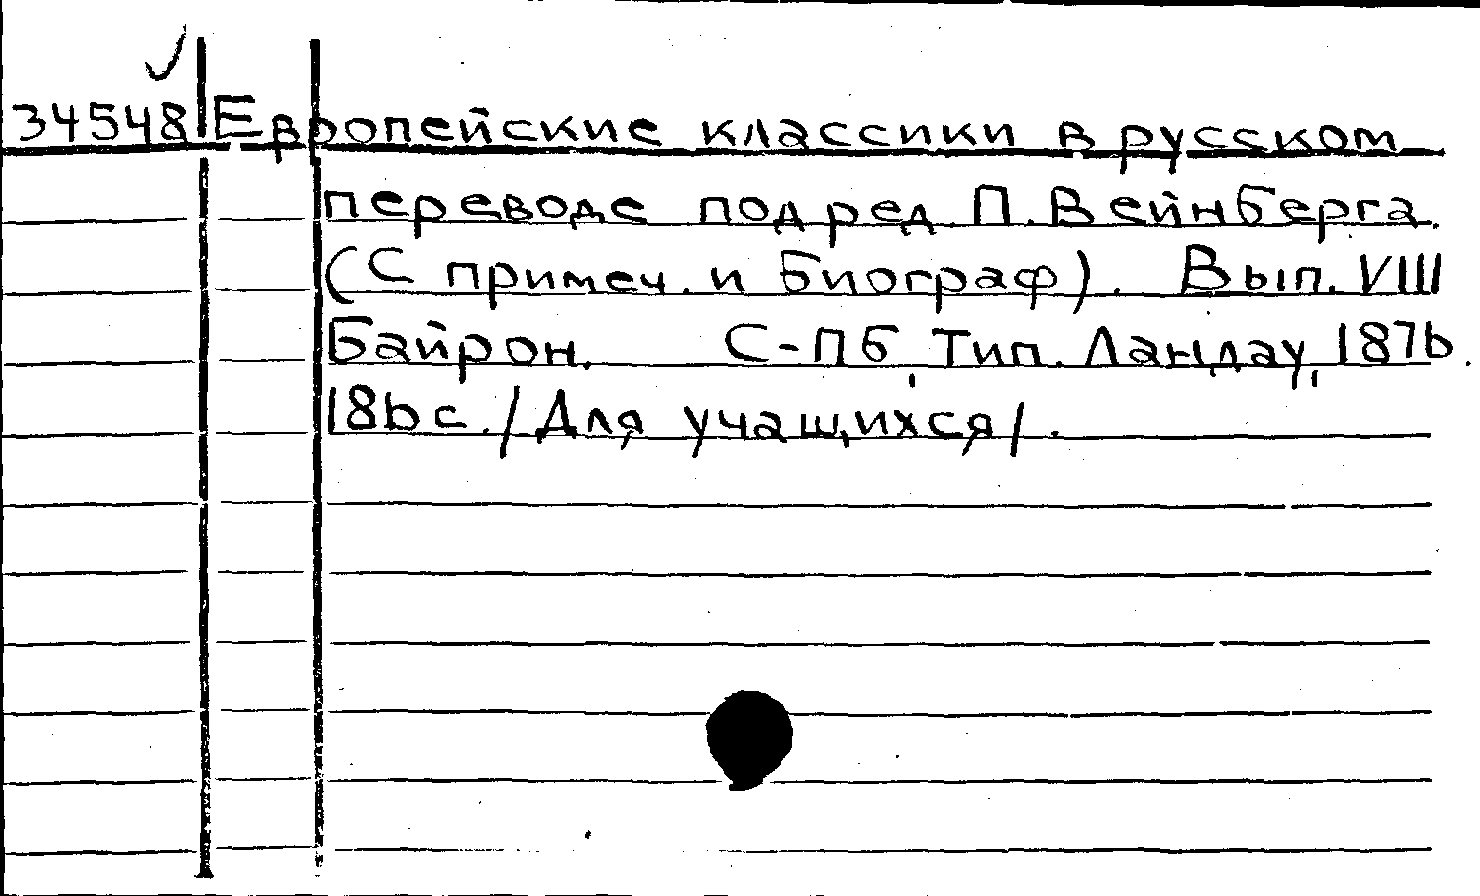 34548 Европейские классики в русском
переводе под ред П. Вейнберга.
(С примеч. и Биограф). Вып. VIII
Байрон. С-Пб, Тип. Ландау, 1876.
186 с. /Для учащихся/.